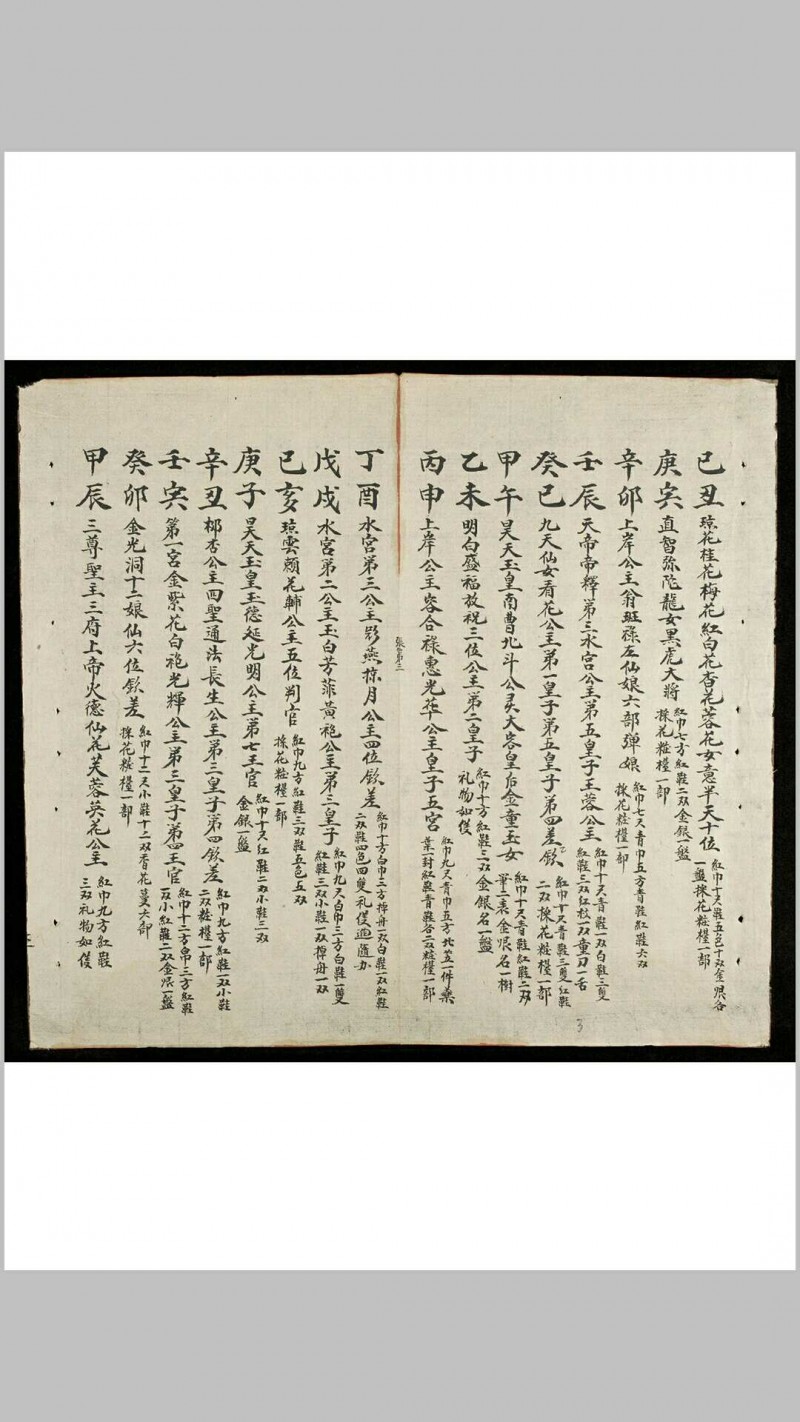 己丑 琼花桂花梅花紅白花杏花蓉花女意半天十位 紅巾十尺鞋五色十双金銀各一盤採花粧糧一部
庚寅 直智弥陀龍女黒虎大將 紅巾七方紅鞋二双金銀一盤採花粧糧一部
辛卯 上岸公主翁斑祿左仙娘六部弹娘 紅巾七尺青巾五方青鞋紅鞋六双採花粧糧一部
壬辰 天帝帝釋第三水宮公主第五皇子王蓉公主 紅巾十尺青鞋一双白鞋三隻紅鞋三双紅松一双童刀一舌
癸巳 九天仙女看花公主第一皇子第五皇子第四差欽 紅巾十尺青鞋三隻紅鞋二双採花粧糧一部
甲午 昊天玉皇南曹北斗公灵大容皇后金童玉女 紅巾十尺青鞋紅鞋二双筆二裹金銀名一樹
乙未 明白盛福放祝三位公主第二皇子 紅巾十方紅鞋三双金銀名一盤礼物如後
丙申 上岸公主容合祿惠光華公主皇子五宮 紅巾九尺青巾五方北一件藥葉一封紅鞋青鞋各二双粧糧一部
3
張第三
丁酉 水宮第三公主影燕掠月公主四位欽差 紅巾十方白巾三方棹舟一双白鞋一双紅鞋二双鞋四色四隻礼後迊隨办
戊戌 水宮第二公主玉白芳菲黃袍公主第三皇子 紅巾九尺白巾三方白鞋一隻紅鞋三双小鞋一双棹舟一双
己亥 琼雲頼花輔公主五位判官 紅巾九方紅鞋三双鞋五色五双採花粧糧一部
庚子 昊天玉皇玉德延光明公主第七王官 紅巾十尺紅鞋二双小鞋三双金銀一盤
辛丑 椰杏公主四聖通法長生公主第三皇子第四欽差 紅巾九方紅鞋一双小鞋二双粧糧一部
壬寅 第一宮金紫花白袍光輝公主第三皇子第四王官 紅巾十二方帛三方紅鞋一双小紅鞋二双金銀一盤
癸卯 金光洞十二娘仙六位欽差 紅巾十二尺小鞋十二双香花蔓六部採花粧糧一部
甲辰 三尊聖主三府上帝火德仙花芙蓉英花公主 紅巾九方紅鞋三双礼物如後
三